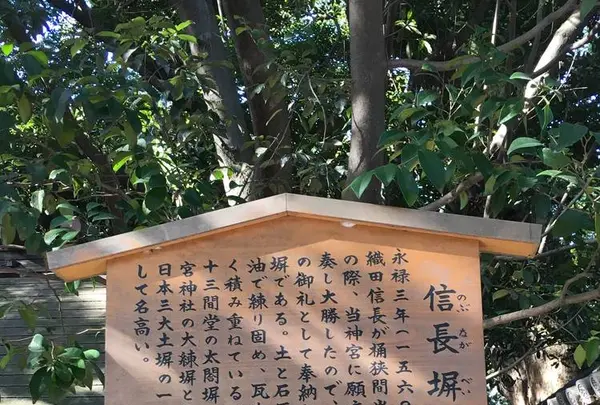 信長塀
のぶ なが べい
永禄三年(一五六〇
織田信長が桶狭間
の際、当神宮に願
奏し大勝したので、
の御礼として奉納
塀である。土と石
油で練り固め、瓦
く積み重ねている
十三間堂の太閤塀
宮神社の大練塀と
日本三大土塀の一
して名高い。